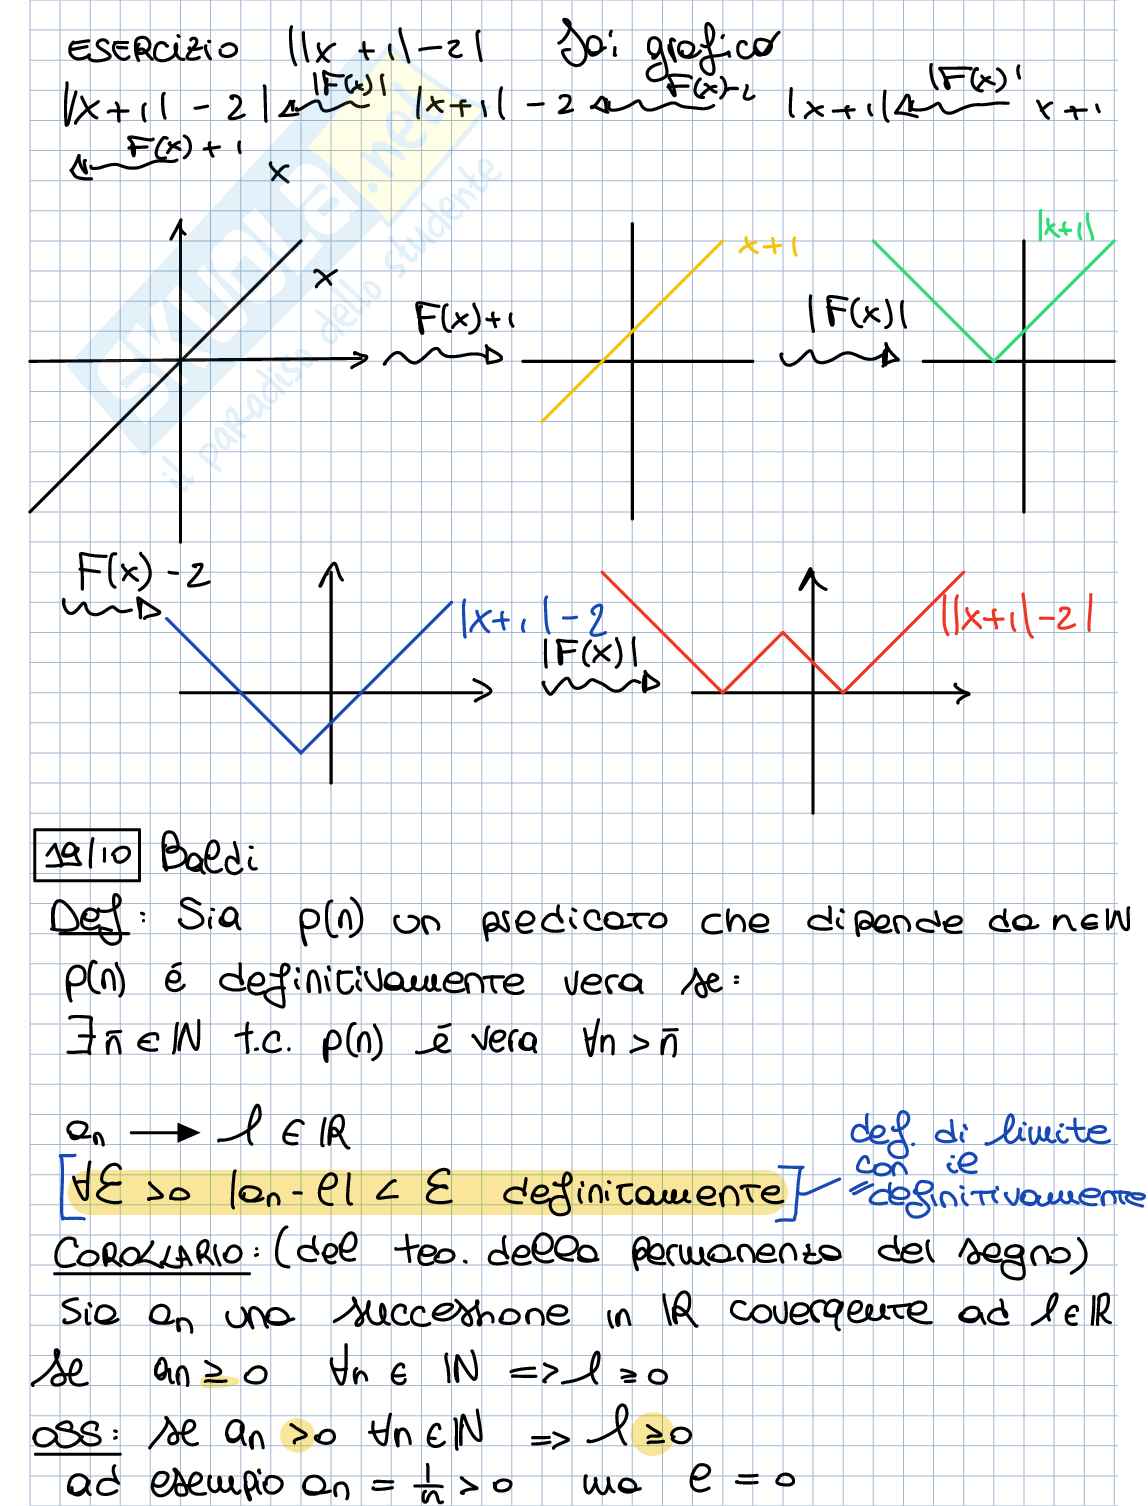 ESERCIZIO ||x+1|-2| Fai grafico
||x+1|-2| |F(x)| |x+1|-2 F(x)-2 |x+1| |F(x)| x+1
F(x)+1 x
x F(x)+1 x+1 |F(x)| |x+1|
F(x)-2 |x+1|-2 |F(x)| ||x+1|-2|
19/10 Baldi
Def: Sia p(n) un predicato che dipende da n∈ℕ
p(n) é definitivamente vera se:
∃n̄∈ℕ t.c. p(n) é vera ∀n>n̄
aₙ → l ∈ ℝ
[∀ε>0 |aₙ-l|<ε definitamente]
def. di limite
con il
"definitivamente
COROLLARIO: (del teo. della permanenza del segno)
Sia aₙ una successione in ℝ covergente ad l∈ℝ
se aₙ≥0 ∀n∈ℕ => l≥0
OSS: se aₙ>0 ∀n∈ℕ => l≥0
ad esempio aₙ = 1/n > 0 ma l = 0
SKUOLA.net
il paradiso dello studente